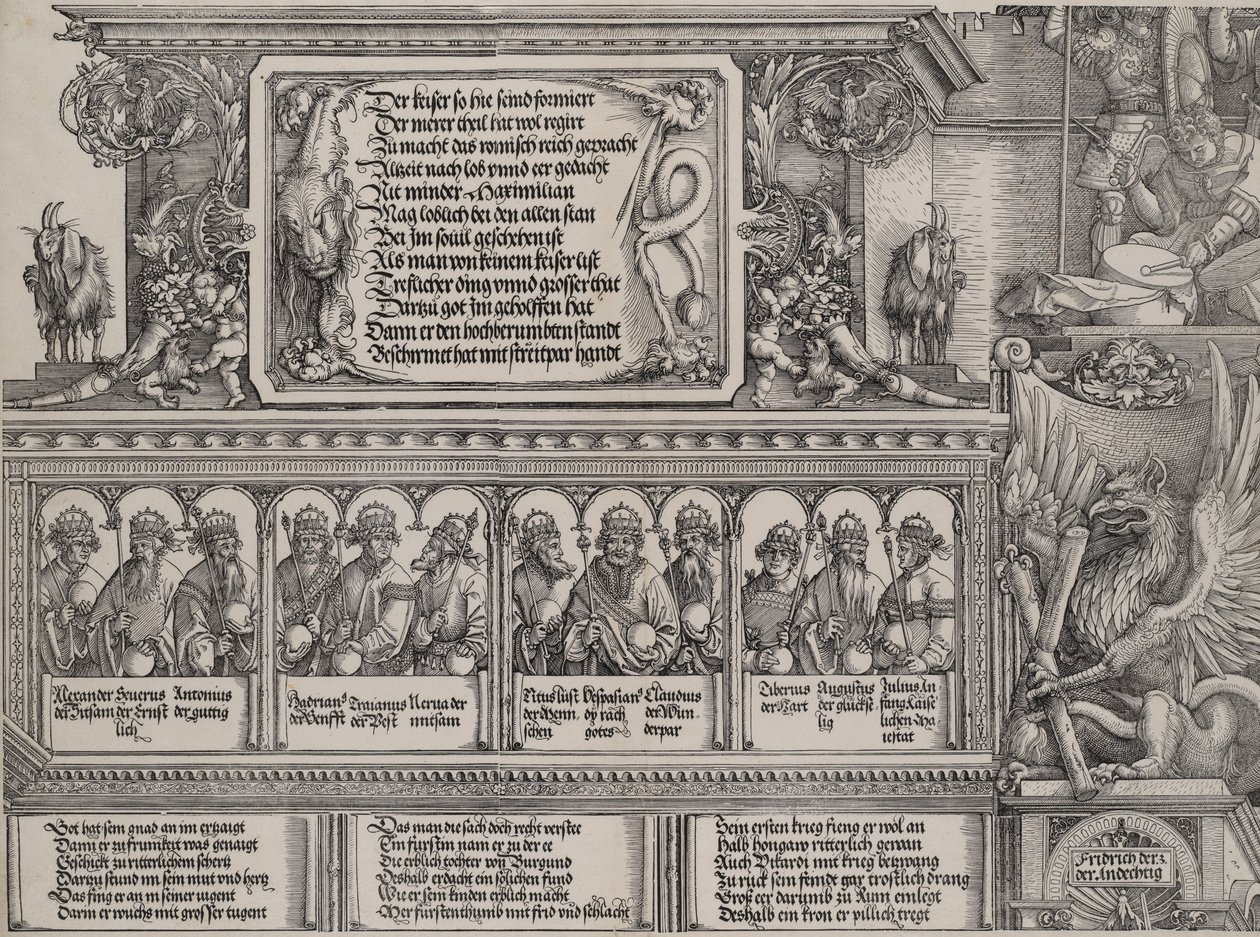 Der keiser so hie seind formiert
Der merer theil hat wol regirt
Zu macht das romisch reich gepracht
Alzeit nach lob vnnd eer gedacht
Nit minder Maximilian
Mag loblich bei den allen stan
Bei Im souil geschehen ist
Als man von keinem keiser list
Treflicher ding vnnd grosser that
Darzu got Im geholffen hat
Dann er den hochberumbten standt
Beschirmet hat mit streitpar handt
Alexander Seuerus Antonius
der Sitsam der Ernst der guttig
lich
Hadrians Traianus Nerua der
der Senfft der Pest mitsam
Titus lust Vespasians Claudius
der Menn der Wun
schen gotes derpar
Tiberius Augustus Julius An
der Hart der gluckse fang kaise
lig lichen Ma
iestat
Got hat sein gnad an im ertzaigt
Dann er zu frumkeyt was genaigt
Geschickt zu ritterlichem schertz
Dartzu stund im sein mut vnd hertz
Das fing er an in seiner iugent
Darin er wuchs mit grosser tugent
Das man die sach doch recht verstee
Ein furstin nam er zu der ee
Die erblich tochter von Burgund
Deshalb erdacht ein solichen fund
Wie er sein kinden erblich macht
Mer furstenthumb mit frid vnd schlacht
Sein ersten krieg fieng er wol an
Halb hongaw ritterlich gewan
Auch Pikardi mit krieg betzwang
Zu ruck sein feindt gar trostlich drang
Groß eer darumb zu Rum einlegt
Deshalb ein kron er pillich tregt
Fridrich der 3.
der Andechtig